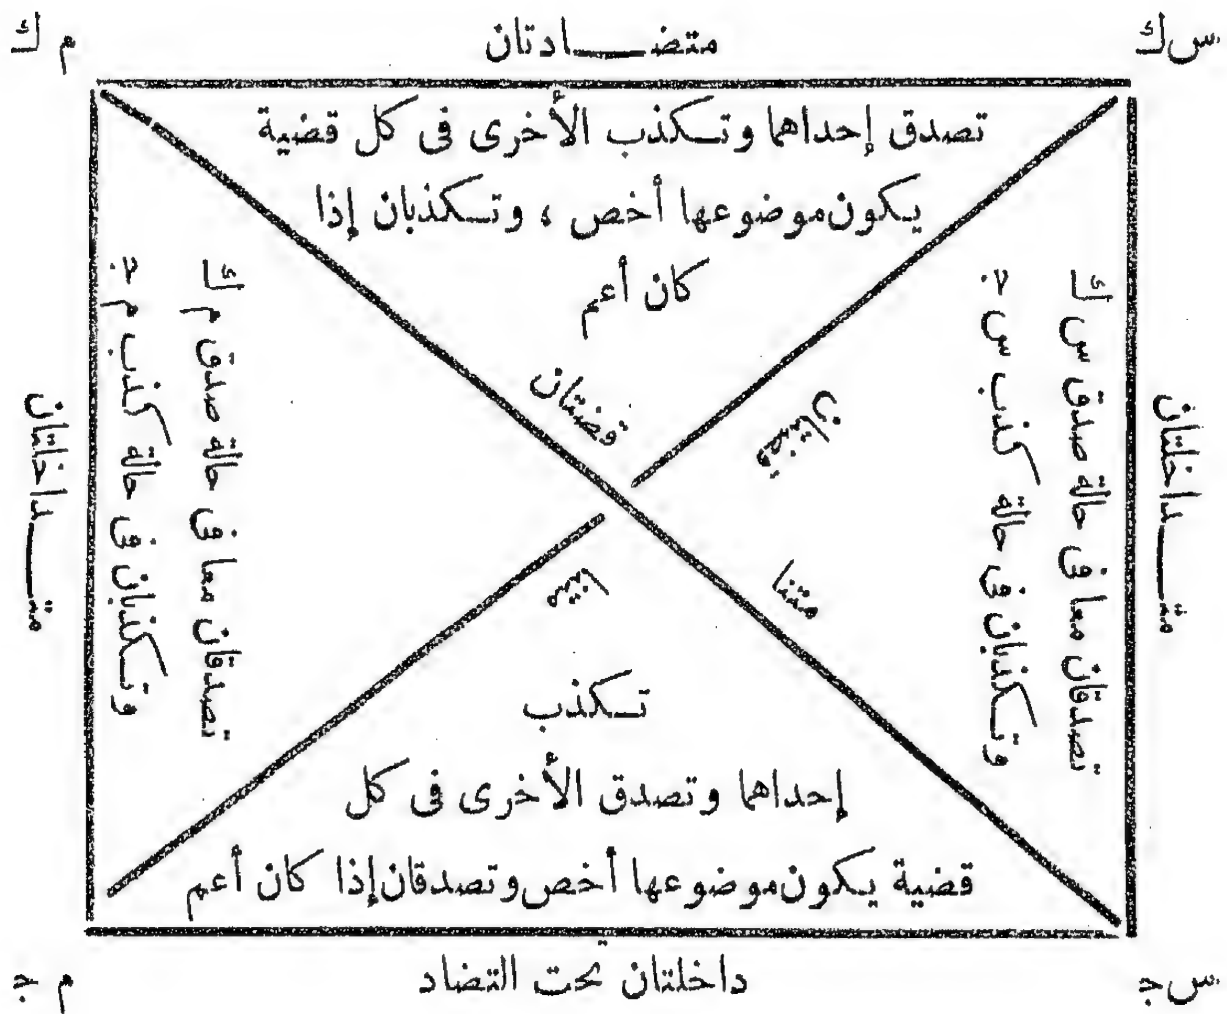 س ك
متضـــادتان
م ك
تصدق إحداهما وتـكذب الأخرى فى كل قضية
يـكون موضوعها أخص ، وتـكذبان إذا
كان أعم
متـــداخلتان
تصدقان معا فى حالة صدق س ك
وتـكذبان فى حالة كذب س ج
قضتان
قضتان
متنا
متنا
تصدقان معا فى حالة صدق م ك
وتـكذبان فى حالة كذب م ج
متـــداخلتان
تـكذب
إحداهما وتصدق الأخرى فى كل
قضية يـكون موضوعها أخص وتصدقان إذا كان أعم
س ج
داخلتان تحت التضاد
م ج